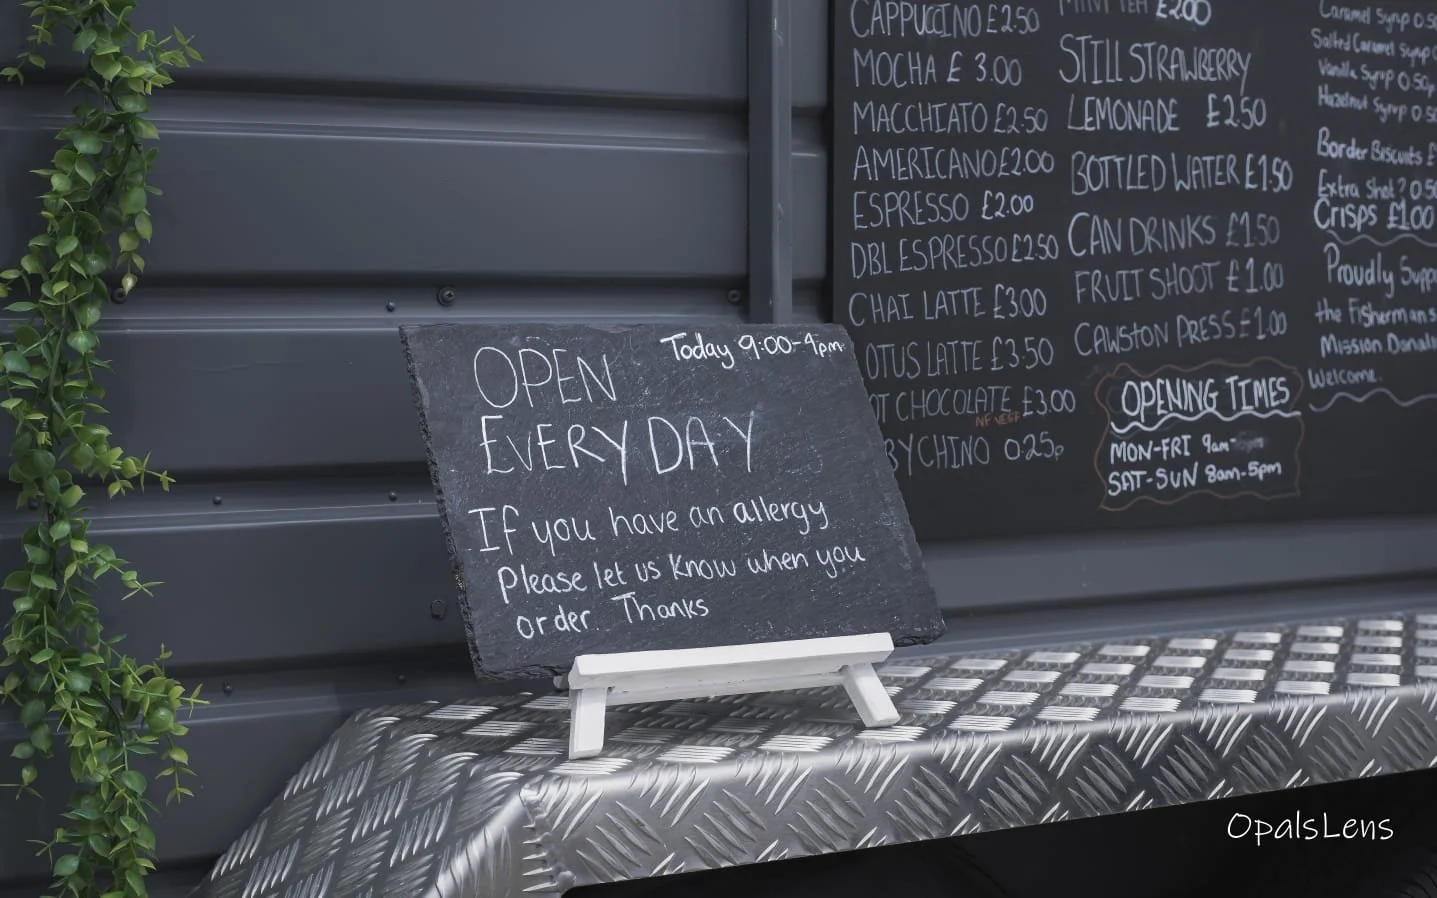 OPEN
Today 9:00-4pm
EVERYDAY
If you have an allergy
Please let us know when you
order. Thanks
CAPPUCCINO £2.50
MOCHA £3.00
MACCHIATO £2.50
AMERICANO £2.00
ESPRESSO £2.00
DBL ESPRESSO £2.50
CHAI LATTE £3.00
OTUS LATTE £3.50
OT CHOCOLATE £3.00
BYCHINO 0.25p
MINT TEA £2.00
STILL STRAWBERRY
LEMONADE £2.50
BOTTLED WATER £1.50
CAN DRINKS £1.50
FRUIT SHOOT £1.00
CAWSTON PRESS £1.00
OPENING TIMES
MON-FRI 9am-
SAT-SUN 8am-5pm
Caramel Syrup 0.50
Salted Caramel Syrup
Vanilla Syrup 0.50p
Hazelnut Syrup 0.50
Border Biscuits £
Extra Shot? 0.50
Crisps £1.00
Proudly Supp
the Fishermans
Mission. Donati
Welcome.
OpalsLens